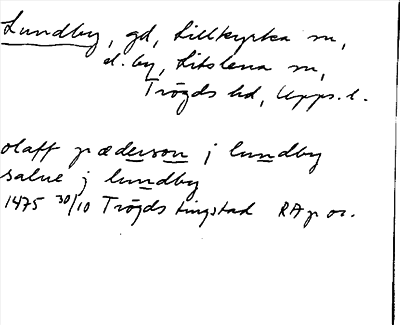 Lundby, gd, Lillkyrka sn,
el. by, Litslena sn,
Trögds hd, Upps. l.
olaff pæderson j lundby
salue j lundby
1475 30/10 Trögds tingstad RA p or.